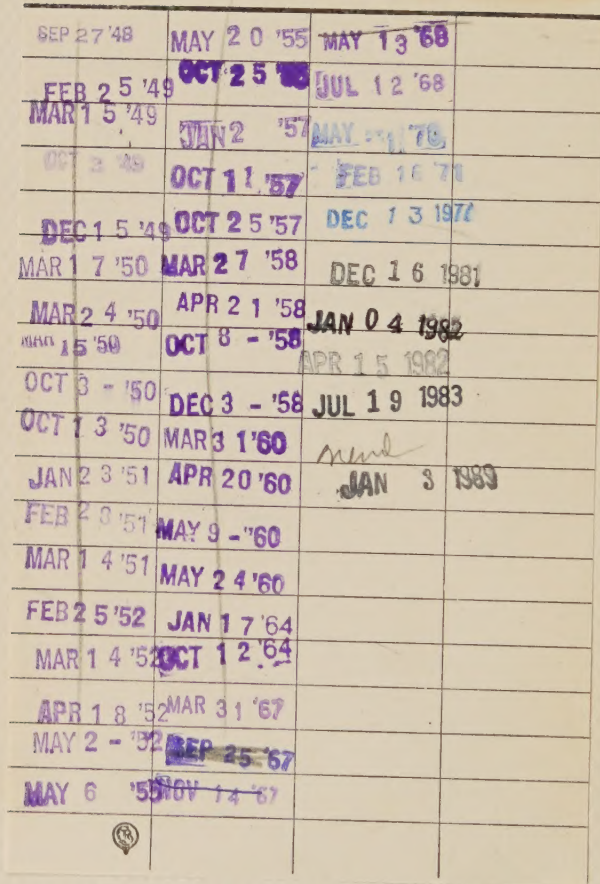 SEP 27 '48
FEB 2 5 '49
MAR 1 5 '49
OCT 2 '49
DEC 1 5 '49
MAR 1 7 '50
MAR 2 4 '50
MAR 15 '50
OCT 3 - '50
OCT 1 3 '50
JAN 2 3 '51
FEB 2 '51
MAR 1 4 '51
FEB 2 5 '52
MAR 1 4 '52
APR 1 8 '52
MAY 2 - '52
MAY 6 '55
MAY 2 0 '55
OCT 2 5
JAN 2 '57
OCT 1 1 '57
OCT 2 5 '57
MAR 2 7 '58
APR 2 1 '58
OCT 8 - '58
DEC 3 - '58
MAR 3 1 '60
APR 20 '60
MAY 9 - '60
MAY 2 4 '60
JAN 1 7 '64
OCT 1 2 '64
MAR 3 1 '67
SEP 25 '67
NOV 14 '67
MAY 13 '68
JUL 1 2 '68
MAY
FEB 16 '71
DEC 1 3 197
DEC 1 6 1981
JAN 0 4 1982
APR 1 5 1982
JUL 1 9 1983
JAN 3 1989